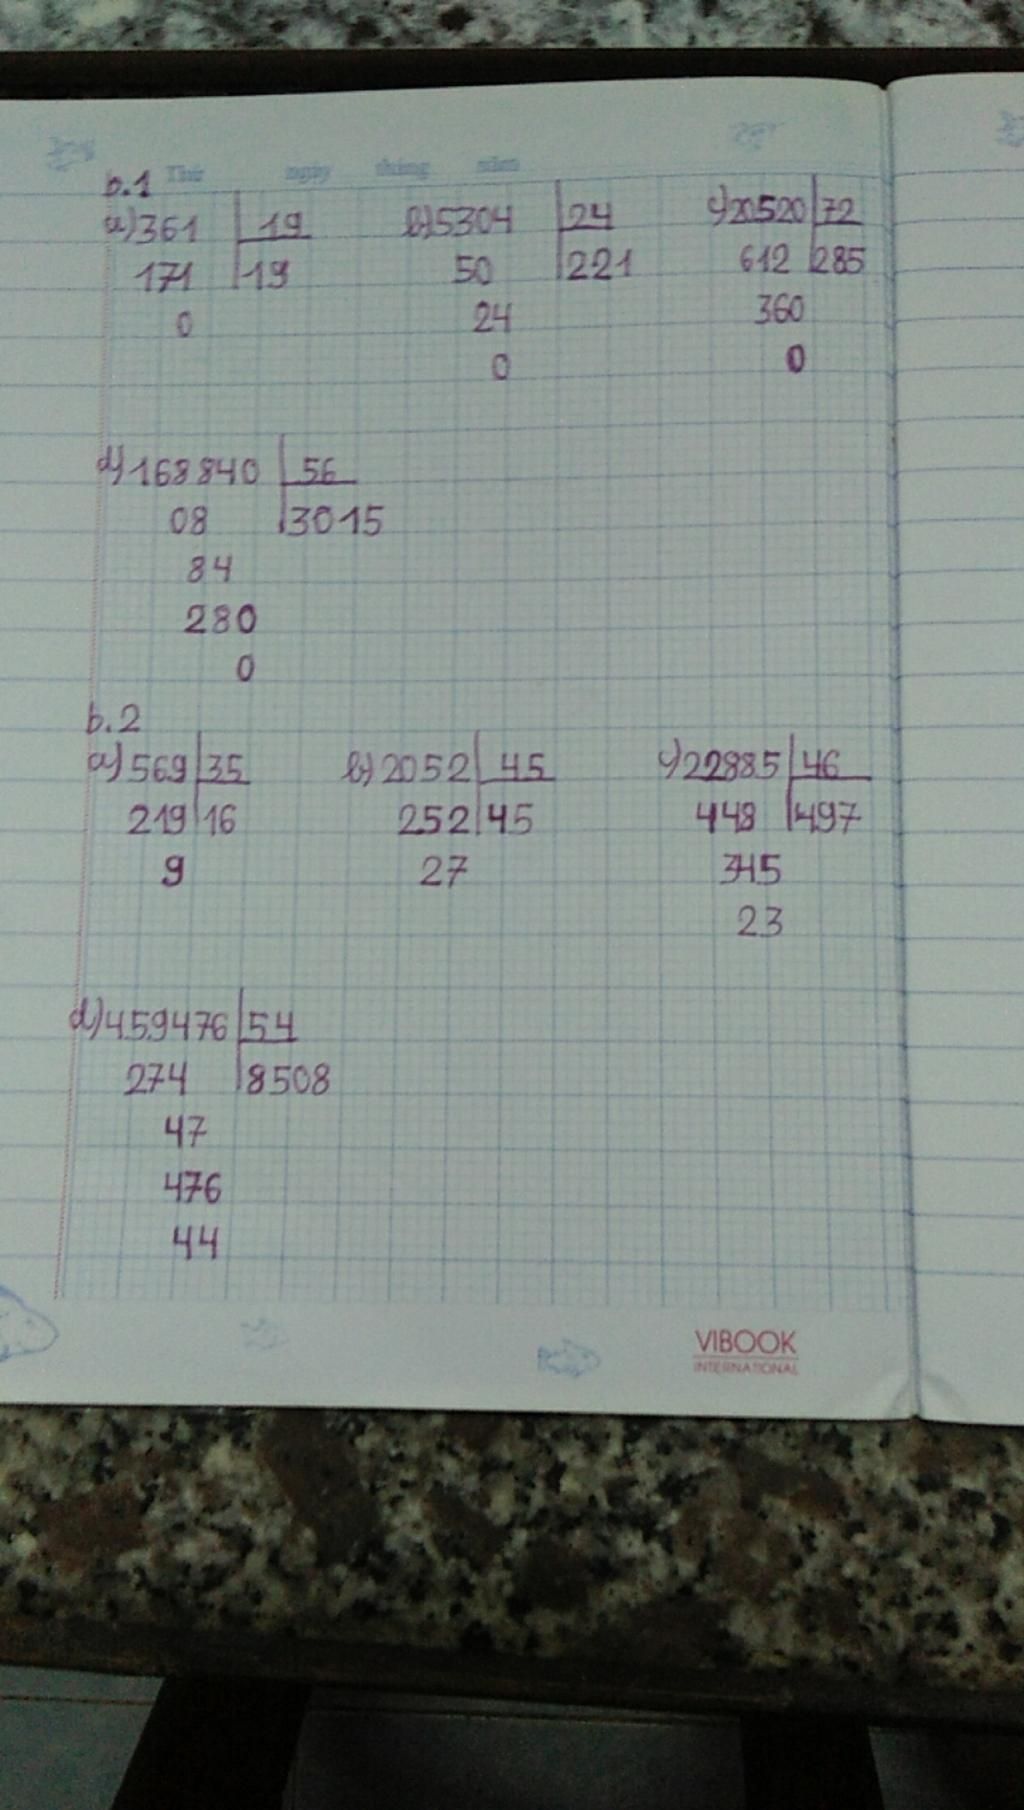 Thứ ngày tháng năm
b.1
a) 361 19 b) 5304 24 c) 20520 72
171 19 50 221 612 285
0 24 360
0 0
d) 168840 56
08 3015
84
280
0
b.2
a) 569 35 b) 2052 45 c) 22885 46
219 16 252 45 448 497
9 27 345
23
d) 459476 54
274 8508
47
476
44
VIBOOK
INTERNATIONAL